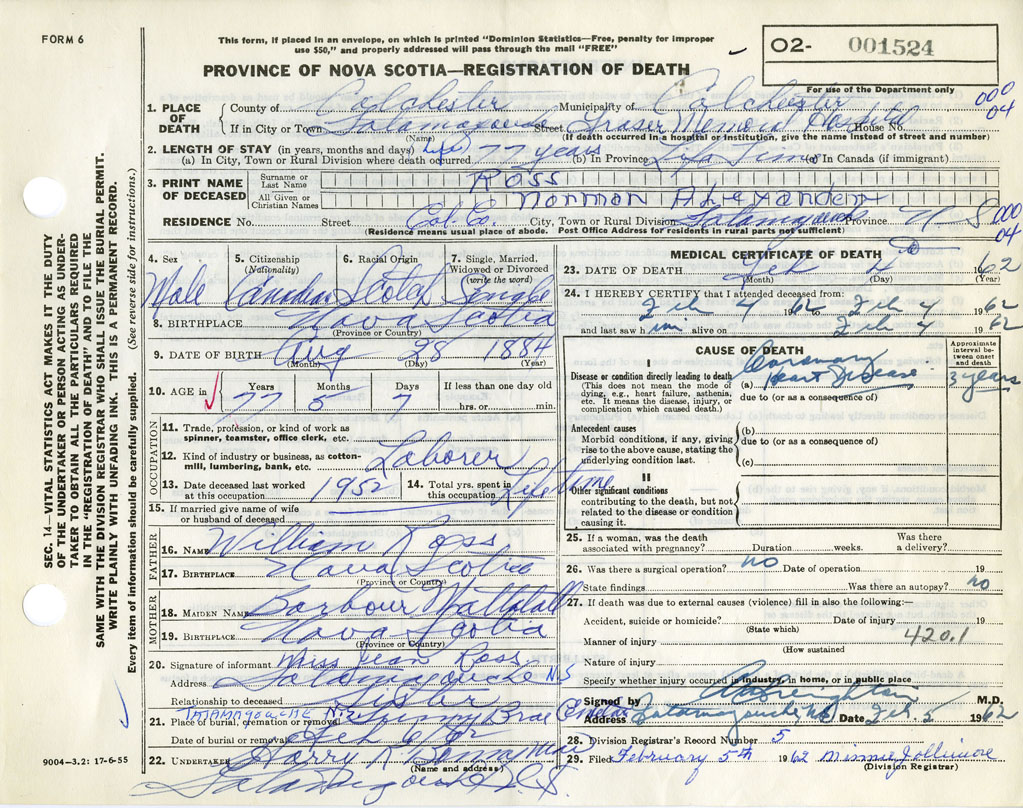 FORM 6
This form, if placed in an envelope, on which is printed "Dominion Statistics—Free, penalty for improper
use $50," and properly addressed will pass through the mail "FREE"
O2- 001524
PROVINCE OF NOVA SCOTIA—REGISTRATION OF DEATH
For use of the Department only
000
04
1. PLACE OF DEATH County of Colchester Municipality of Colchester
If in City or Town Tatamagouche Street Fraser Memorial Hospital House No.
(Name) (If death occurred in a hospital or institution, give the name instead of street and number)
2. LENGTH OF STAY (in years, months and days) Life
(a) In City, Town or Rural Division where death occurred 77 years (b) In Province Life Time (c) In Canada (if immigrant)
3. PRINT NAME OF DECEASED Surname or Last Name ROSS
All Given or Christian Names Norman Alexander
RESIDENCE No. Street Col. Co. City, Town or Rural Division Tatamagouche Province N S
000
04
(Residence means usual place of abode. Post Office Address for residents in rural parts not sufficient)
4. Sex 5. Citizenship (Nationality) 6. Racial Origin 7. Single, Married, Widowed or Divorced (write the word)
Male Canadian Scotch Single
8. BIRTHPLACE Nova Scotia
(Province or Country)
9. DATE OF BIRTH Aug 28 1884
(Month) (Day) (Year)
10. AGE in Years Months Days If less than one day old
77 5 7 hrs. or min.
OCCUPATION
11. Trade, profession, or kind of work as spinner, teamster, office clerk, etc.
12. Kind of industry or business, as cotton-mill, lumbering, bank, etc. Laborer
13. Date deceased last worked at this occupation 1952 14. Total yrs. spent in this occupation Life time
15. If married give name of wife or husband of deceased
FATHER
16. NAME William Ross
17. BIRTHPLACE Nova Scotia
(Province or Country)
MOTHER
18. MAIDEN NAME Barbour
19. BIRTHPLACE Nova Scotia
(Province or Country)
20. Signature of informant Miss Jean Ross
Address Tatamagouche N S
Relationship to deceased Sister
21. Place of burial, cremation or removal TATAMAGOUCHE N.S. Cemetery
Date of burial or removal Feb 6/62
22. UNDERTAKER Harry
(Name and address)
Tatamagouche N. S.
MEDICAL CERTIFICATE OF DEATH
23. DATE OF DEATH Feb 1962
(Month) (Day) (Year)
24. I HEREBY CERTIFY that I attended deceased from:
Feb 4 1962 Feb 4 1962
and last saw him alive on Feb 4 1962
CAUSE OF DEATH
Approximate interval between onset and death
I
Disease or condition directly leading to death
(This does not mean the mode of dying, e.g., heart failure, asthenia, etc. It means the disease, injury, or complication which caused death.)
(a) Coronary Heart Disease 3 years
due to (or as a consequence of)
Antecedent causes
Morbid conditions, if any, giving rise to the above cause, stating the underlying condition last.
(b)
due to (or as a consequence of)
(c)
II
Other significant conditions
contributing to the death, but not related to the disease or condition causing it.
25. If a woman, was the death associated with pregnancy? Duration weeks. Was there a delivery?
26. Was there a surgical operation? no Date of operation 19
State findings Was there an autopsy? no
27. If death was due to external causes (violence) fill in also the following:—
Accident, suicide or homicide? Date of injury 19
(State which)
Manner of injury 420.1
(How sustained
Nature of injury
Specify whether injury occured in industry, in home, or in public place
Signed by M.D.
Address Tatamagouche, NS Date Feb. 5 1962
28. Division Registrar's Record Number 5
29. Filed February 5th 1962 Minnie Jollimore
(Division Registrar)
SEC. 14—VITAL STATISTICS ACT MAKES IT THE DUTY
OF THE UNDERTAKER OR PERSON ACTING AS UNDER-
TAKER TO OBTAIN ALL THE PARTICULARS REQUIRED
IN THE "REGISTRATION OF DEATH" AND TO FILE THE
SAME WITH THE DIVISION REGISTRAR WHO SHALL ISSUE THE BURIAL PERMIT.
WRITE PLAINLY WITH UNFADING INK. THIS IS A PERMANENT RECORD.
Every item of information should be carefully supplied. (See reverse side for instructions.)
9004—3.2: 17-6-55